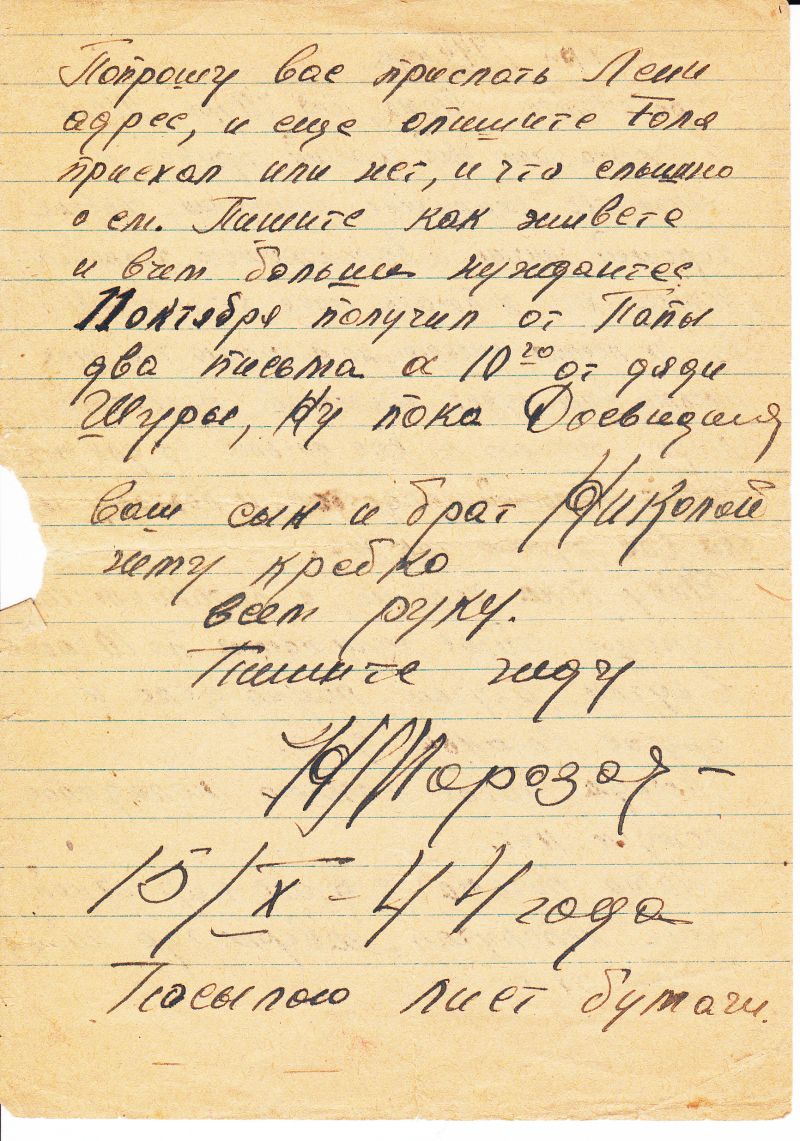 Попрошу вас прислать Лени
адрес, и еще опишите Толя
приехал или нет, и что слышно
о ем. Пишите как живете
и вчем больши нуждаитес
11 октября получил от Папы
два письма а 10го от дяди
Шуры, Ну пока Досвидания
ваш сын и брат Николай
жму кребко
всем руку.
Пишите жду
Н Морозов –
15/X – 44 года
Посылаю лист бумаги.